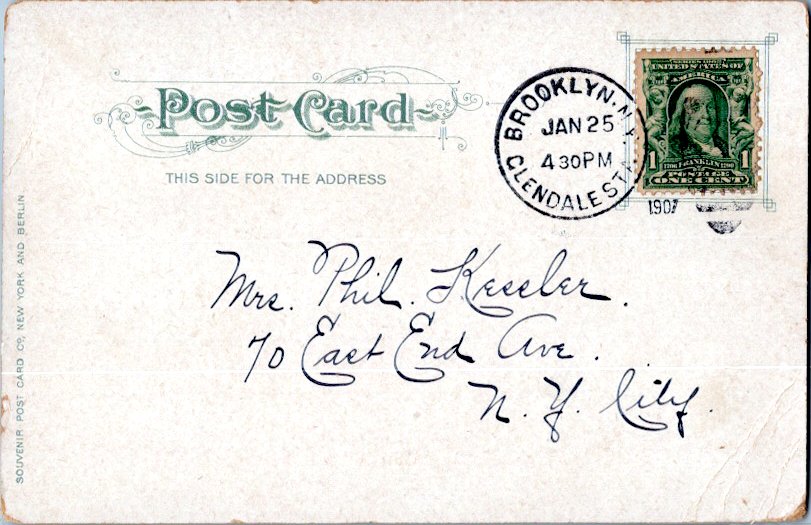 Post Card
THIS SIDE FOR THE ADDRESS
BROOKLYN. N.Y.
JAN 25
4 30 PM
GLENDALE STA.
1907
SERIES 1902
UNITED STATES OF
AMERICA
1 FRANKLIN 1
POSTAGE
ONE CENT
Mrs. Phil. Kessler.
70 East End Ave.
N. Y. City.
SOUVENIR POST CARD Co, NEW YORK AND BERLIN